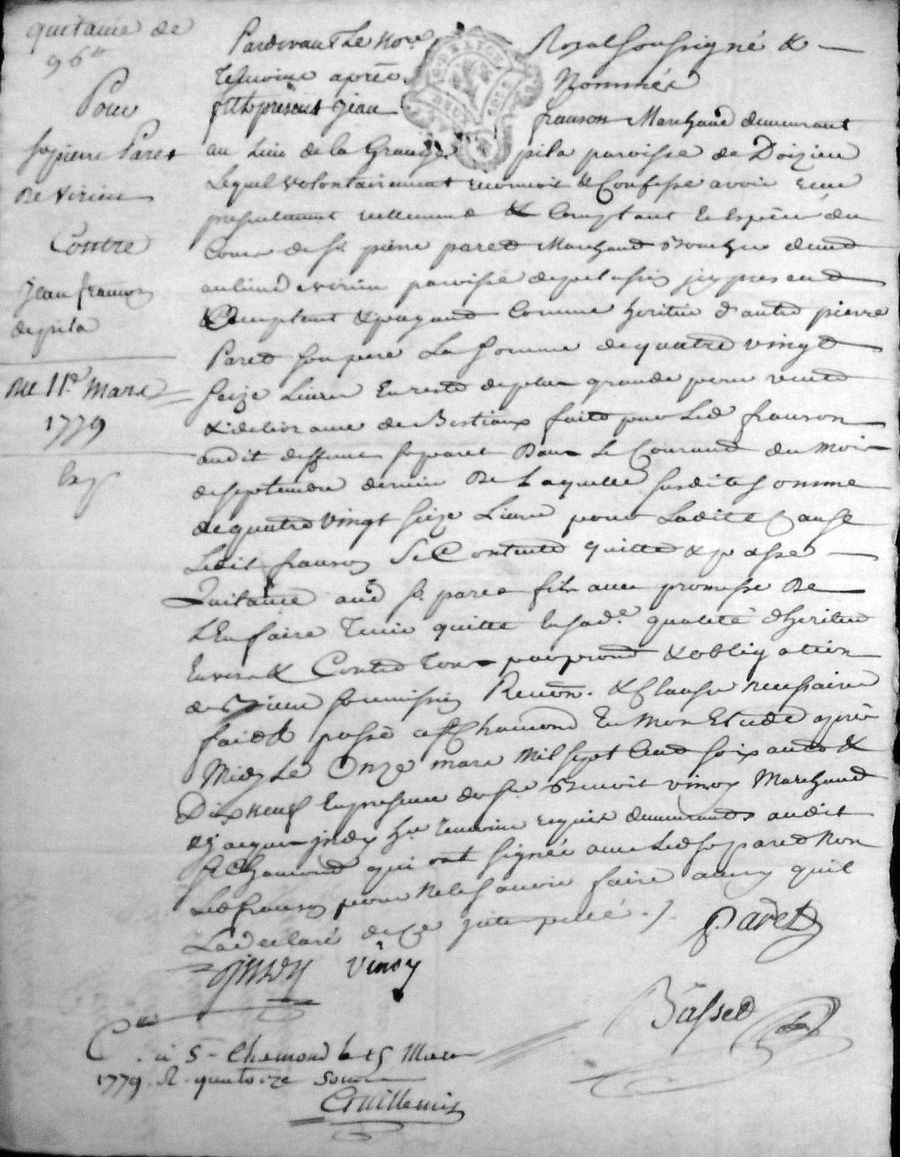 quitance de
96tt
Pour
sr pierre Paret
De virieu
Contre
jean franson
de pila
Du 11e mars
1779
Pardevant Le Nore Royal Soussigné &
temoins après Nommés
fut present jean franson Marchand demeurant
au Lieu de la Grange pila paroisse de Doizieu
Lequel volontairement reconnoit & Confesse avoir reçu
presentement reellement & Comptant En Espèces du
Cours de sr pierre paret Marchand Boucher demt
au lieu de virieu paroisse de pelussin icy present
Comptant & payant Comme heritier d'autre pierre
Paret son pere La somme de quatre vingt
seize Livres En reste de plus grande pour vente
& delivrance de Bestiaux faite par Led franson
audit deffunt sr paret Dans Le Courant du Mois
de septembre dernier De Laquelle susdite somme
de quatre vingt seize Livres pour Ladite Cause
Ledit franson Se Contente quitte & passe
Quitance aud sr paret fils avec promesse De
L'En faire tenir quitte En sade qualité d'heritier
Envers & Contre tous par promt & obligation
de Biens soumission Renon. & Clauses necessaires
fait & passé a St Chamond En Mon Etude après
Midy Le Onze mars Mil sept Cent soixante &
Dix neuf En presence de sr Benoit vinoy Marchand
& jacques jndy temoins requis demeurants audit
St Chamond qui ont signés avec Led sr paret Non
Led franson pour ne le sçavoir faire ainsy quil
La declaré de Ce interpellé ./.
Paret
jndy vinoy
Bâsset
C. à St Chamond le 15 Mars
1779 R. quatorze sous
Guillemin